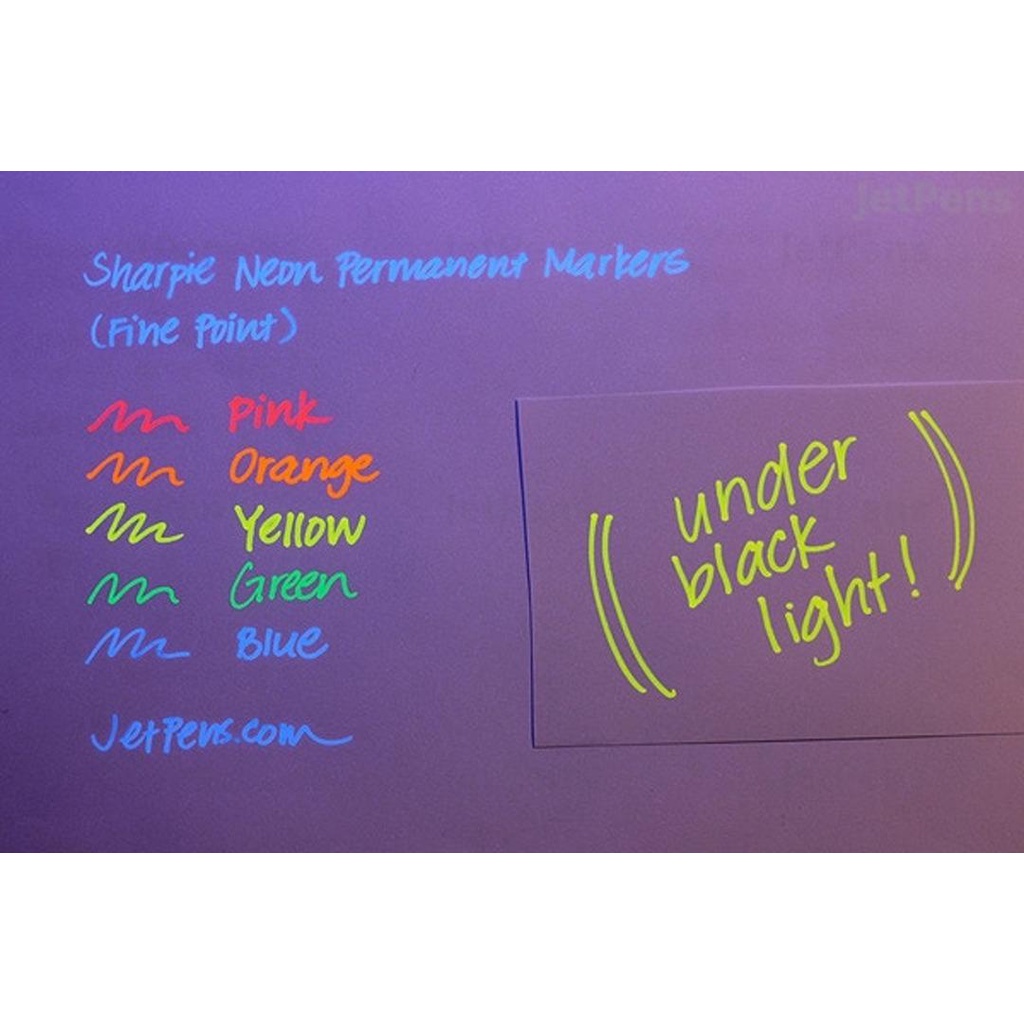 JetPens
Sharpie Neon Permanent Markers
(Fine Point)
Pink
Orange
Yellow
Green
Blue
JetPens.com
((under
black
light!))